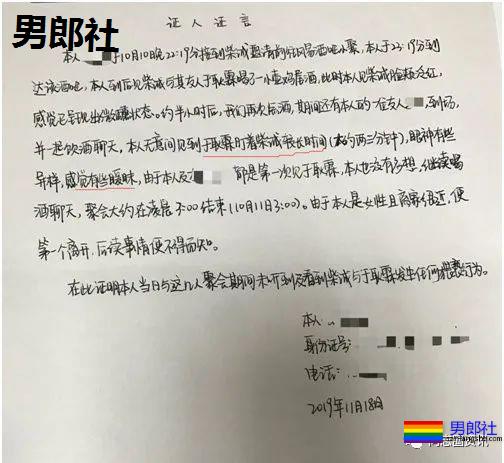 男郎社
证人证言
本人 于10月10晚22:19分接到柴诚邀请前往风易酒吧小聚,本人于23:19分到
达该酒吧,本人到后见柴诚与其友人于耿霖喝了一小壶鸡尾酒,此时本人见柴诚脸颊泛红,
感觉已呈现出微醺状态。约半小时后,我们再次启酒,期间还有本人的一位友人 到场,
并一起饮酒聊天,本人无意间见到于耿霖盯着柴诚很长时间(大约两三分钟),眼神有些
异样,感觉有些暧昧,由于本人及 都是第一次见于耿霖,本人也没有多想,继续喝
酒聊天,聚会大约在凌晨3:00结束(10月11日3:00)。由于本人是女性且离家很近,便
第一个离开,后续事情便不得而知。
在此证明本人当日与这几人聚会期间未听到及看到柴诚与于耿霖发生任何 行为。
本人:
身份证号:
电话:
2019年11月18日
男郎社